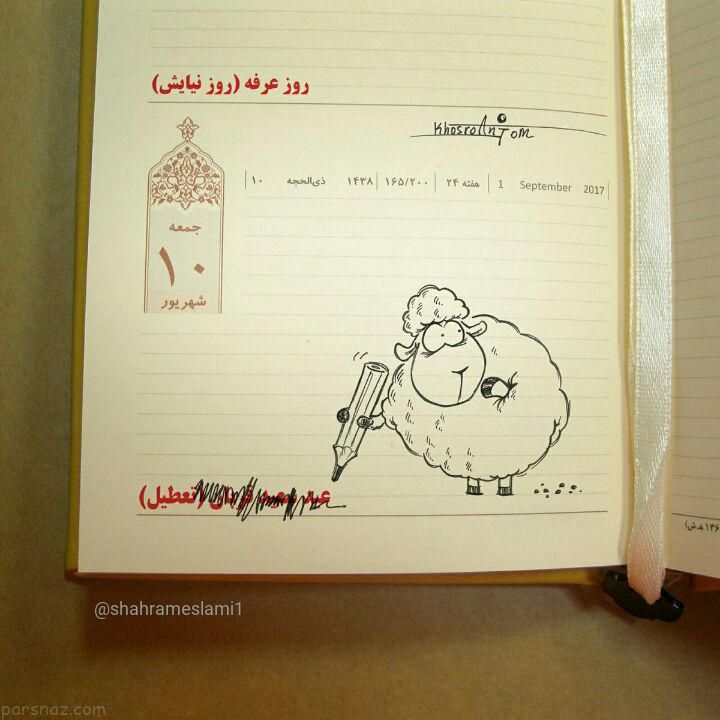 روز عرفه (روز نیایش)
KhosroAnjom
۱۰ ذی‌الحجه ۱۴۳۸ ۱۶۵/۲۰۰ هفته ۲۴ 1 September 2017
جمعه
۱۰
شهریور
عید (تعطیل)
@shahrameslami1
parsnaz.com